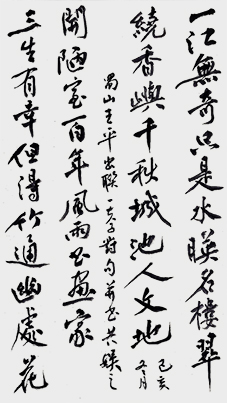 一江無奇只是水暎名樓翠
繞香嶼千秋城池人文地
己亥
冬月
三生有幸但得竹通幽處花
開陋室百年風雨書畫家
蜀山王平出聯對句并書共娛之